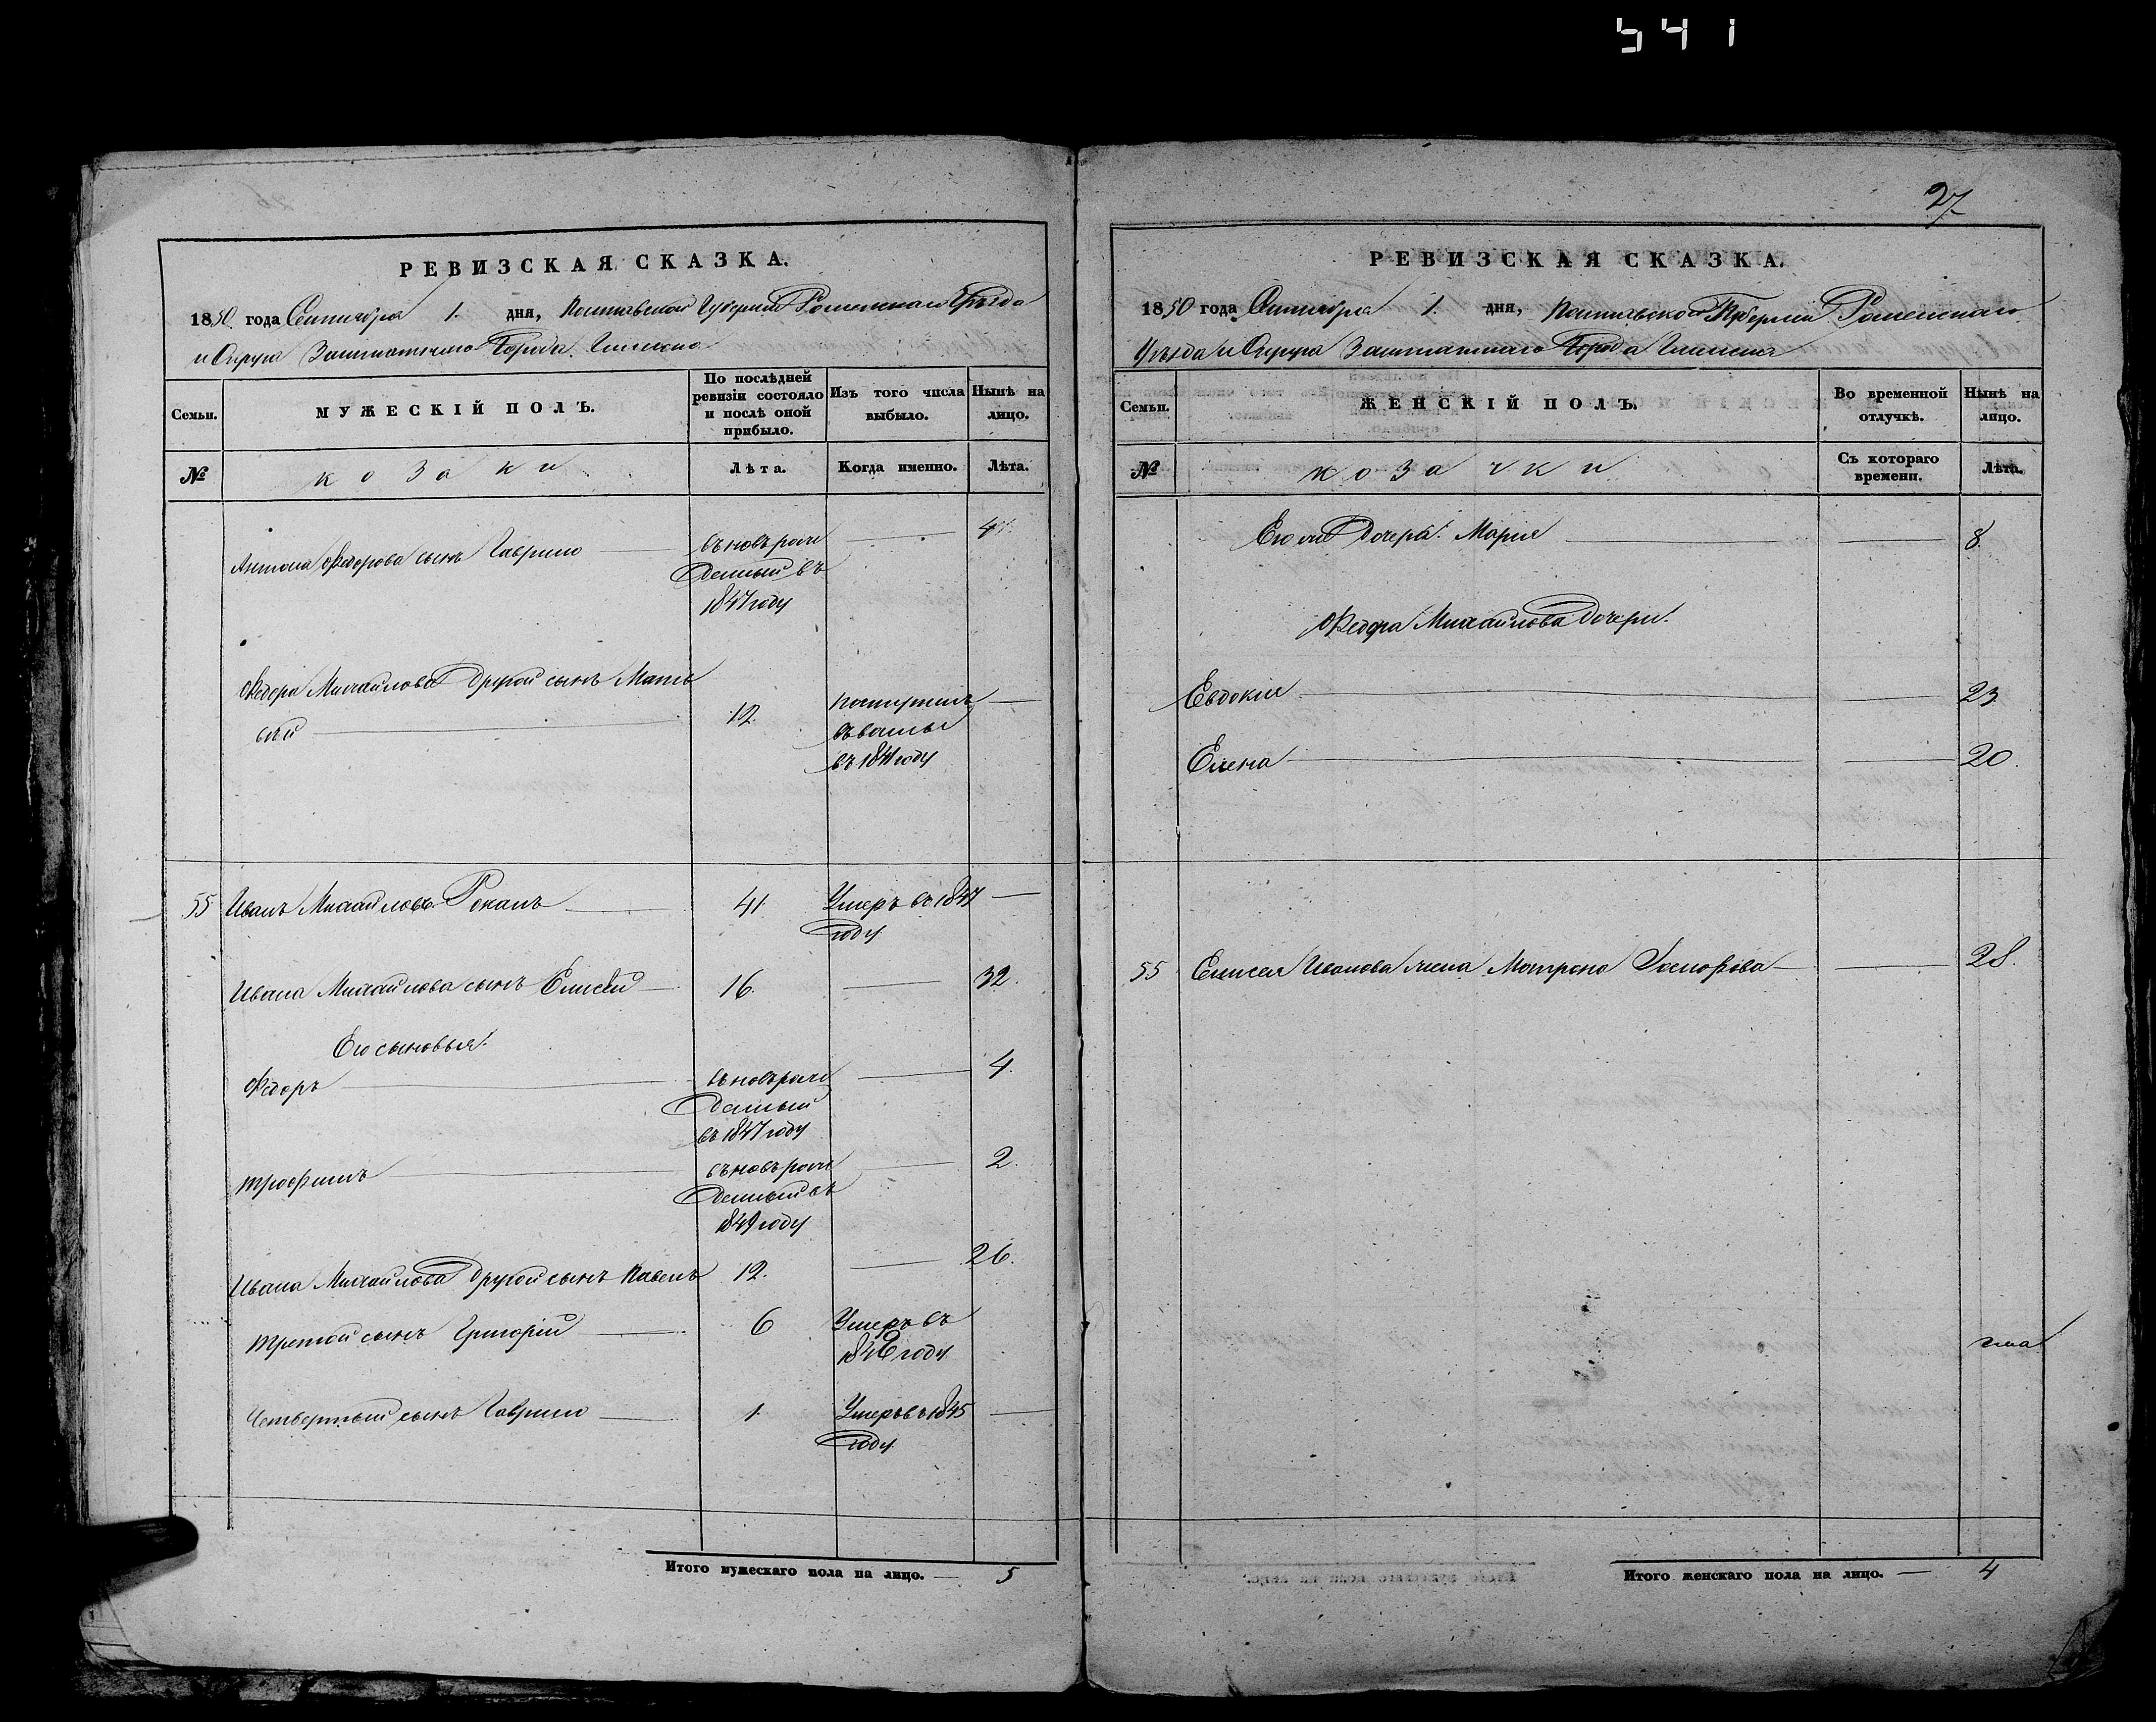 541
РЕВИЗСКАЯ СКАЗКА.
1850 года Сентября 1. дня, Полтавской Губерніи Роменскаго Уѣзда
и Округа Заштатнаго Города Глинска
Семьи.
МУЖЕСКІЙ ПОЛЪ.
По послѣдней ревизіи состояло и послѣ оной прибыло.
Изъ того числа выбыло.
Нынѣ на лицо.
№
козаки
Лѣта.
Когда именно.
Лѣта.
Антона Федорова сынъ Гаврило
вновь рож
денный въ
1847 году
4.
Федора Михайлова другой сынъ Мать
вѣй
12.
въ 1841 году
55 Иванъ Михайловъ 41 Умеръ въ 1847
году
Ивана Михайлова сынъ Елисѣй 16. 32.
Его сыновья:
Федоръ
вновь рож
денный
въ 1847 году
4.
Трофимъ
вновь рож
денный въ
1849 году
2.
Ивана Михайлова другой сынъ Павелъ 12. 26.
третій сынъ Григорій 6 Умеръ въ
1846 году
Четвертый сынъ Гаврило 1 Умеръ въ 1845
году
Итого мужескаго пола на лицо. 5
27
РЕВИЗСКАЯ СКАЗКА.
1850 года Сентября 1. дня, Полтавской Губерніи Роменскаго
Уѣзда и Округа Заштатнаго Города Глинска
Семьи.
ЖЕНСКІЙ ПОЛЪ.
Во временной отлучкѣ.
Нынѣ на лицо.
№
козачки
Съ котораго времени.
Лѣта.
Дочерь: Марія 8.
Федора Михайлова дочери:
Евдокія 23
Елена 20.
55 Елисея Иванова жена Матрена 28.
Итого женскаго пола на лицо. 4